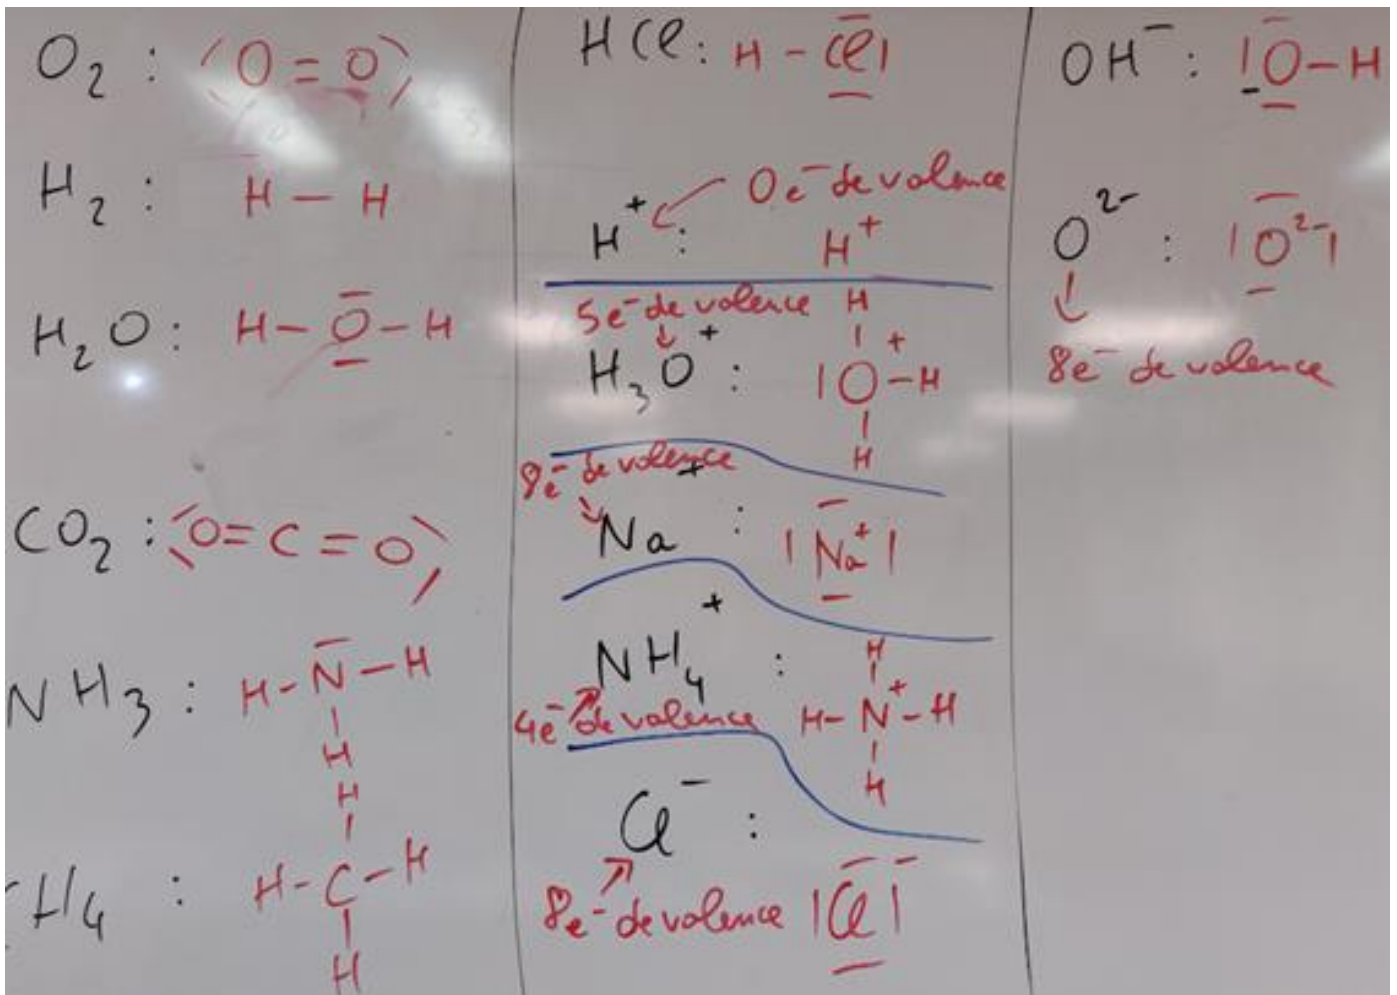 O₂ : ⟨O = O⟩
H₂ : H – H
H₂O : H – O – H
CO₂ : ⟨O = C = O⟩
NH₃ : H – N – H
|
H
H
|
H4 : H – C – H
|
H
HCl : H – Cl|
0e⁻ de valence
H⁺ : H⁺
5e⁻ de valence
H
|
H₃O⁺ : |O⁺ – H
|
H
8e⁻ de valence
Na⁺ : |Na⁺|
H
|
NH₄⁺ : H – N⁺ – H
4e⁻ de valence
|
H
Cl⁻ :
8e⁻ de valence |Cl|⁻
OH⁻ : |O – H
O²⁻ : |O²⁻|
8e⁻ de valence